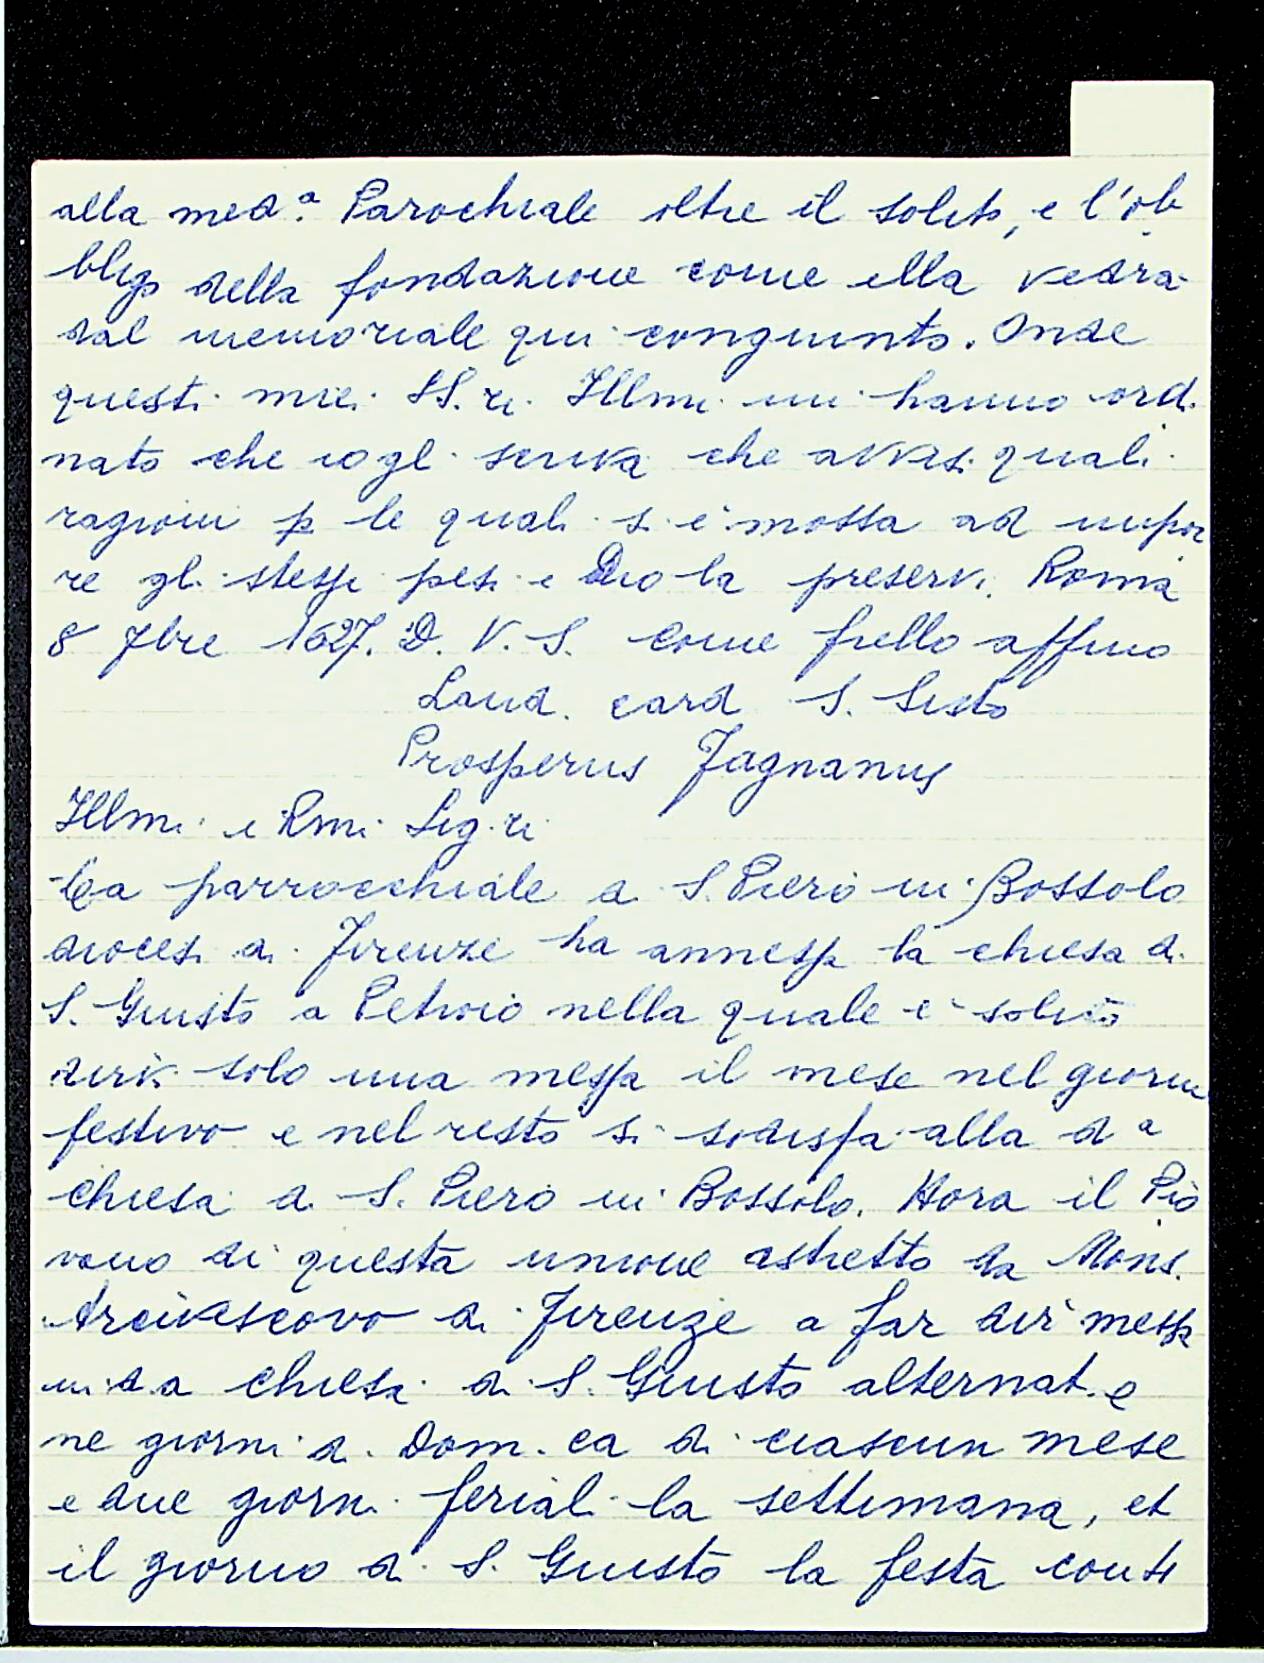 alla med.a Parochiale oltre il solito, e l'ob
bligo della fondazione come ella vedrà
dal memoriale qui congiunto. Onde
questi miei SS.ri Illmi mi hanno ordi
nato che io gli scriva che avvisi quali
ragioni p le quali si è mossa ad impor
re gli stessi pesi e Dio la preservi. Roma
8 7bre 1627. D. V. S. Come frello affmo
Laud. card S. Sisto
Prosperus Fagnanus
Illmi e Rmi Sig.ri
La parrocchiale di S. Piero in Bossolo
diocesi di Firenze ha annessa la chiesa di
S. Giusto a Petroio nella quale è solito
dirsi solo una messa il mese nel giorno
festivo e nel resto si sodisfa alla d a
chiesa di S. Piero in Bossolo. Hora il Pio
vano di questa unione astretto da Mons.
Arcivescovo di Firenze a far dir messa
in d.a chiesa di S. Giusto alternat. e
ne giorni di Dom.ca di ciascun mese
e due giorni feriali la settimana, et
il giorno di S. Giusto la festa conti